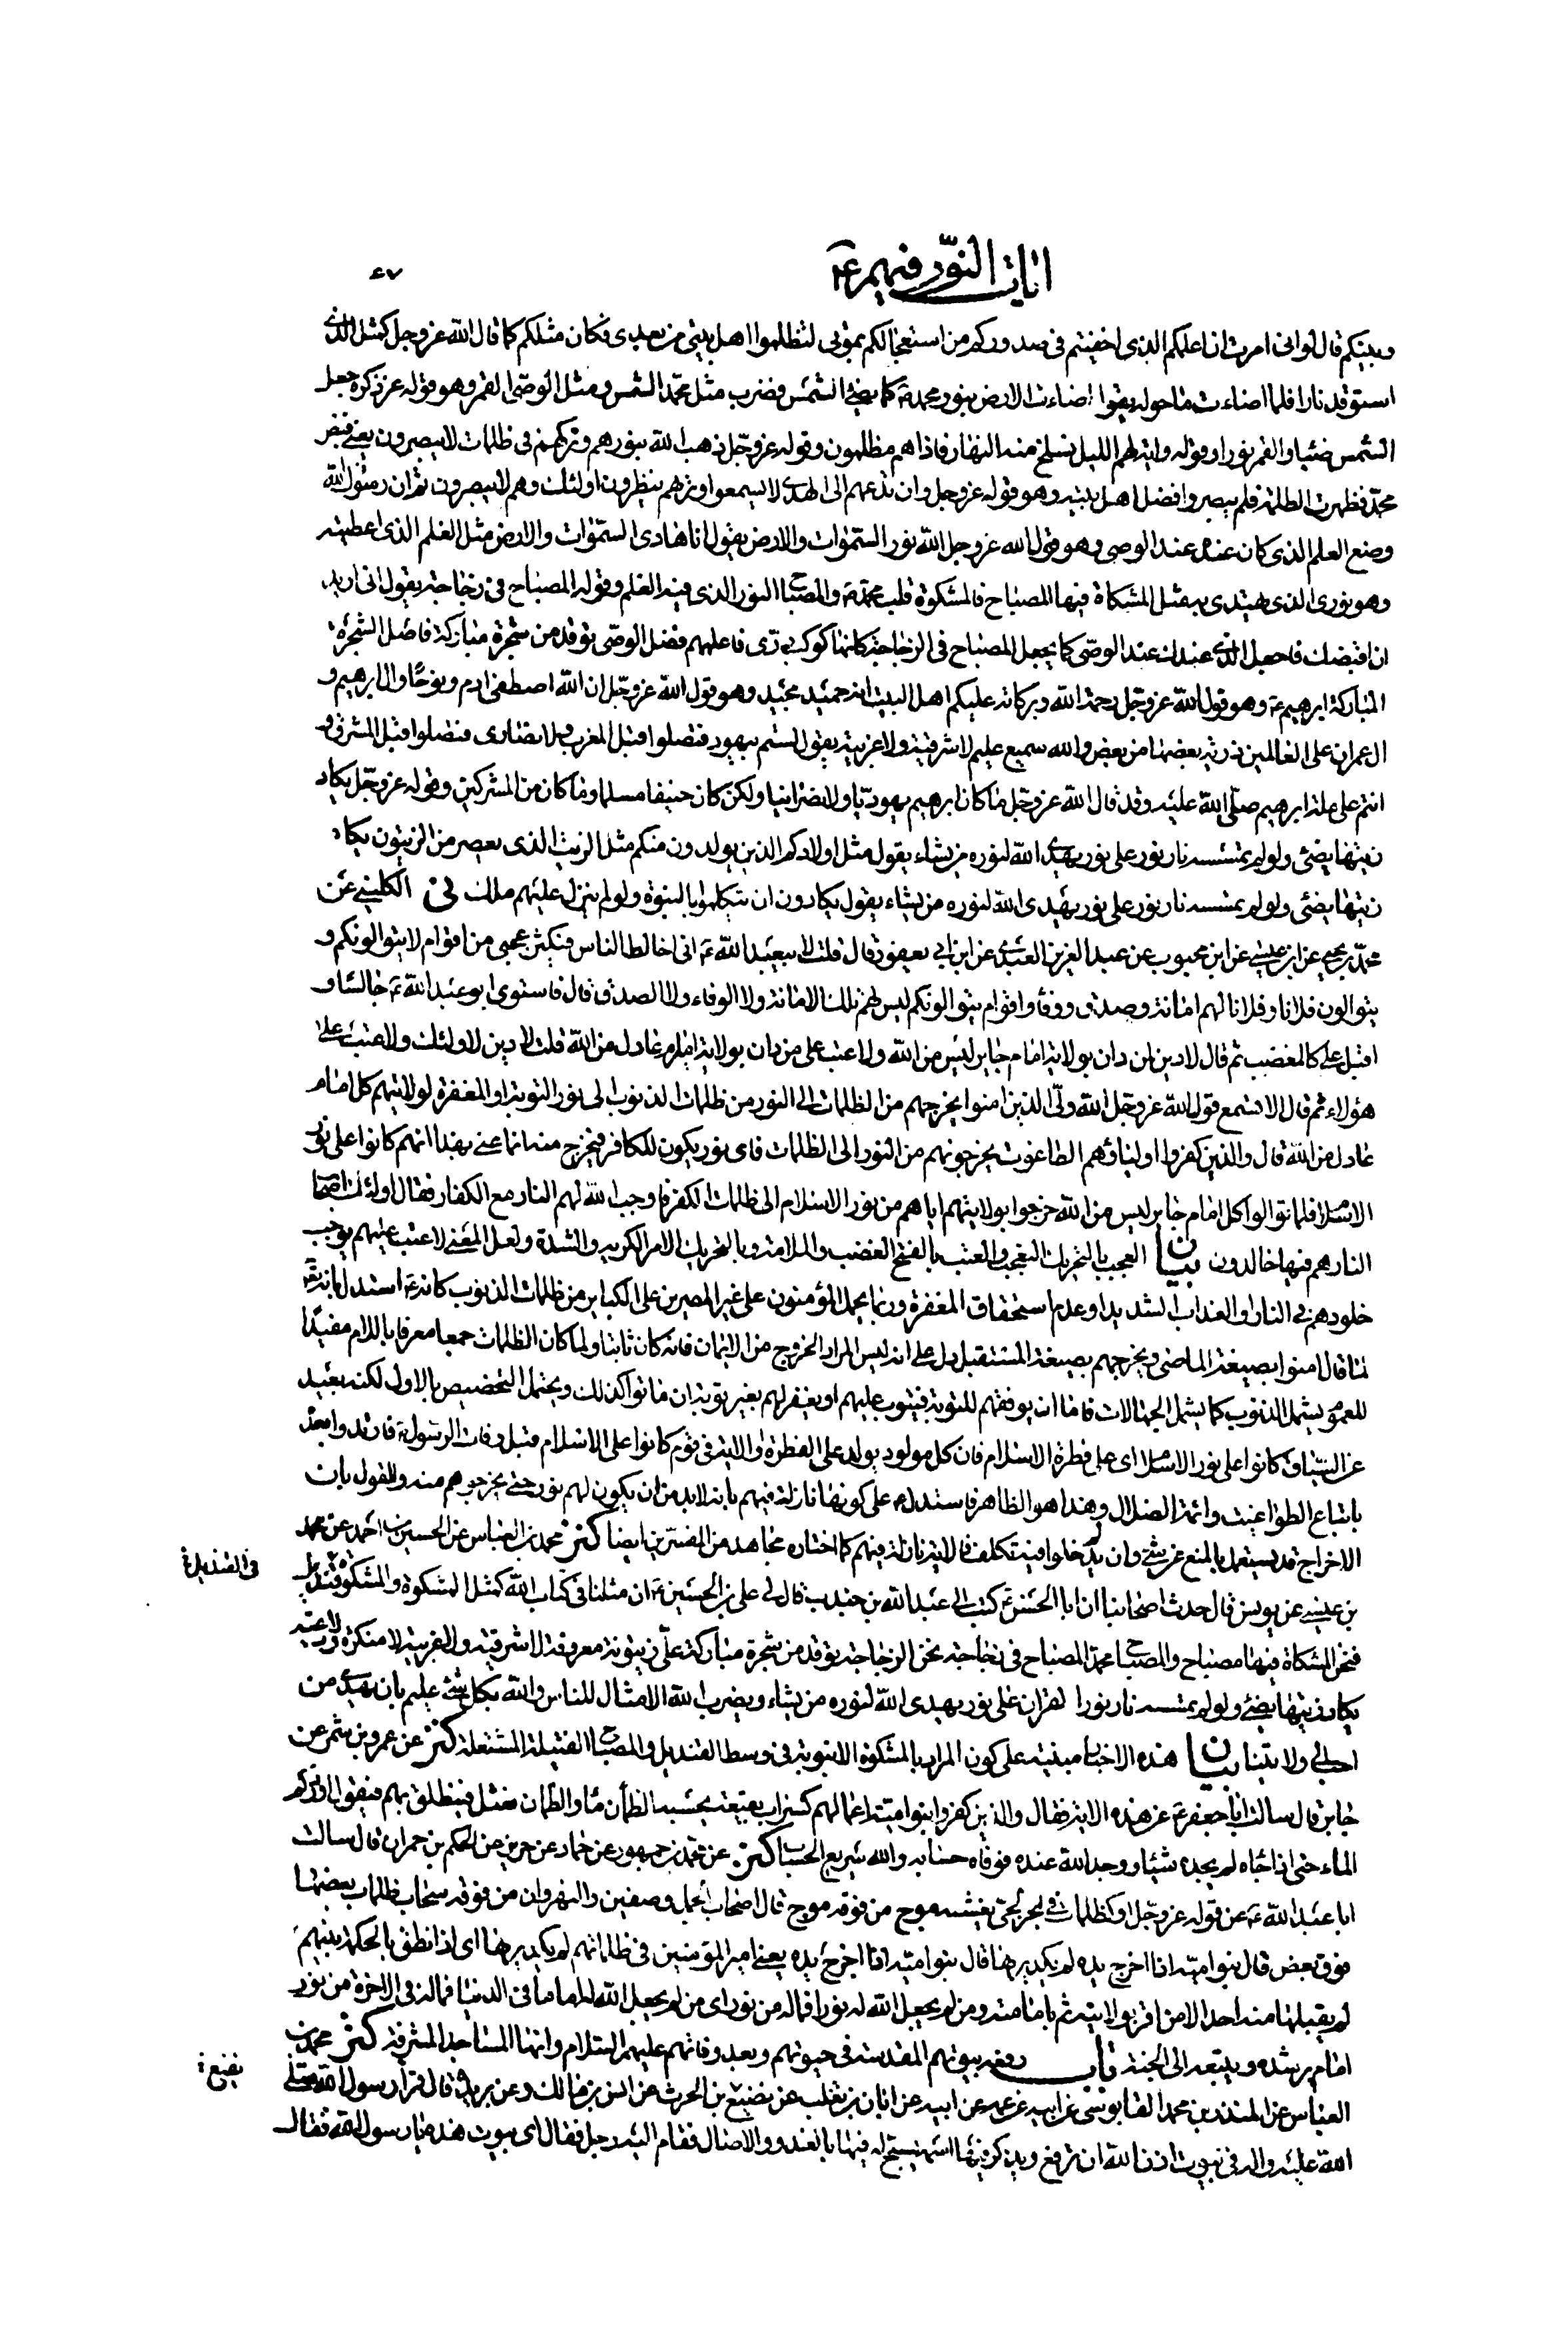 ايات النور فيهم ع
٤٧
وبينكم قال لو انى امرت ان اعلمكم الذى اخفيتم فى صدوركم من استعجالكم بموتى لتظلموا اهل بيتى من بعدى فكان مثلكم كما قال الله عز وجل كمثل الذى
استوقد نارا فلما اضاءت ما حوله يقول اضاءت الارض بنور محمد ص كما يضئ الشمس فضرب مثل محمد الشمس ومثل الوصى القمر وهو قوله عز ذكره جعل
الشمس ضياء والقمر نورا وقوله واية لهم الليل نسلخ منه النهار فاذا هم مظلمون وقوله عز وجل ذهب الله بنورهم وتركهم فى ظلمات لا يبصرون يعنى قبض
محمد فظهرت الظلمة فلم يبصروا فضل اهل بيته وهو قوله عز وجل وان تدعهم الى الهدى لا يسمعوا وتريهم ينظرون اولئك وهم لا يبصرون ثم ان رسول الله
وضع العلم الذى كان عنده عند الوصى وهو قول الله عز وجل الله نور السموات والارض يقول انا هادى السموات والارض مثل العلم الذى اعطيته
وهو نورى الذى يهتدى به مثل المشكاة فيها المصباح فالمشكوة قلب محمد ص والمصباح النور الذى فيه العلم وقوله المصباح فى زجاجة يقول انى اريد
ان اقبضك فاجعل الذى عندك عند الوصى كما يجعل المصباح فى الزجاجة كانها كوكب درى فاعلمهم فضل الوصى توقد من شجرة مباركة فاصل الشجرة
المباركة ابرهيم ع وهو قول الله عز وجل رحمة الله وبركاته عليكم اهل البيت انه حميد مجيد وهو قول الله عز وجل ان الله اصطفى ادم ونوحا وال ابرهيم و
ال عمران على العالمين ذرية بعضها من بعض والله سميع عليم لا شرقية ولا غربية يقول لستم بيهود فتصلوا قبل المغرب ولا نصارى فتصلوا قبل المشرق و
انتم على ملة ابرهيم صلى الله عليه وقد قال الله عز وجل ما كان ابرهيم يهوديا ولا نصرانيا ولكن كان حنيفا مسلما وما كان من المشركين وقوله عز وجل يكاد
زيتها يضئ ولو لم تمسسه نار نور على نور يهدى الله لنوره من يشاء يقول مثل اولادكم الذين يولدون منكم مثل الزيت الذى يعصر من الزيتون يكاد
زيتها يضئ ولو لم تمسسه نار نور على نور يهدى الله لنوره من يشاء يقول يكادون ان يتكلموا بالنبوة ولو لم ينزل عليهم ملك نى الكلينى عن
محمد بن يحيى عن ابن عيسى عن ابن محبوب عن عبد العزيز العبدى عن ابن ابى يعفور قال قلت لابيعبد الله ع انى اخالط الناس فيكثر عجبى من اقوام لا يتوالونكم و
يتوالون فلانا وفلانا لهم امانة وصدق ووفاء واقوام يتوالونكم ليس لهم تلك الامانة ولا الوفاء ولا الصدق قال فاستوى ابو عبد الله ع جالسا و
اقبل على كالمغضب ثم قال لا دين لمن دان بولاية امام جاير ليس من الله ولا عتب على من دان بولاية امام عادل من الله قلت لا دين لاولئك ولا عتب على
هؤلاء ثم قال الا تسمع قول الله عز وجل الله ولى الذين امنوا يخرجهم من الظلمات الى النور من ظلمات الذنوب الى نور التوبة او المغفرة لولايتهم كل امام
عادل من الله قال والذين كفروا اولياؤهم الطاغوت يخرجونهم من النور الى الظلمات فاى نور يكون للكافر فيخرج منه انما عنى بهذا انهم كانوا على نور
الاسلام فلما توالوا كل امام جاير ليس من الله خرجوا بولايتهم اياهم من نور الاسلام الى ظلمات الكفر فاوجب الله لهم النار مع الكفار فقال اولئك اصحاب
النار هم فيها خالدون بيان العجب بالتحريك التعجب والعتب بالفتح الغضب والملامة وبالتحريك الامر الكريه والشدة ولعل المعنى لا عتب عليهم يوجب
خلودهم فى النار او العذاب الشديد او عدم استحقاق المغفرة وربما يحمل المؤمنون على غير المصرين على الكباير من ظلمات الذنوب كانه ع استدل بانه تع
لما قال امنوا بصيغة الماضى ويخرجهم بصيغة المستقبل دل على انه ليس المراد الخروج من الايمان فانه كان ثابتا ولما كان الظلمات جمعا معرفا باللام مفيدا
للعموم يشمل الذنوب كما يشمل الجهالات فاما ان يوفقهم للتوبة فيتوب عليهم او يغفر لهم بغير توبة ان ماتوا كذلك ويحتمل التخصيص بالاول لكنه بعيد
عن السياق كانوا على نور الاسلام اى على فطرة الاسلام فان كل مولود يولد على الفطرة او الاية فى قوم كانوا على الاسلام قبل وفات الرسول ص فارتدوا بعده
باتباع الطواغيت وائمة الضلال وهذا هو الظاهر فاستدل ع على كونها نازلة فيهم بانه لابد من ان يكون لهم نور حتى يخرجوهم منه والقول بان
الاخراج قد يستعمل بالمنع عن شئ وان لم يدخلوا فيه تكلف فالاية نازلة فيهم كما اختاره مجاهد من المفسرين ايضا كنز محمد بن العباس عن الحسين بن احمد عن محمد
بن عيسى عن يونس قال حدث اصحابنا ان ابا الحسن ع كتب الى عبد الله بن جندب قال لى على بن الحسين ع ان مثلنا فى كتاب الله كمثل المشكوة والمشكوة فى القنديل
فنحن المشكاة فيها مصباح والمصباح محمد المصباح فى زجاجة نحن الزجاجة توقد من شجرة مباركة على زيتونة معروفة لا شرقية ولا غربية لا منكرة ولا دعية
يكاد زيتها يضئ ولو لم تمسسه نار نور القران على نور يهدى الله لنوره من يشاء ويضرب الله الامثال للناس والله بكل شئ عليم بان يهدى من
احب الى ولايتنا بيان هذه الاخبار مبنية على كون المراد بالمشكوة الانبوبة فى وسط القنديل والمصباح الفتيلة المشتعلة كنز عن عمرو بن شمر عن
جابر قال سالت ابا جعفر ع عن هذه الاية فقال والذين كفروا بنو امية اعمالهم كسراب بقيعة يحسبه الظمأن ماء والظمأن نعثل فينطلق بهم فيقول اوردكم
الماء حتى اذا جاءه لم يجده شيئا ووجد الله عنده فوفاه حسابه والله سريع الحساب كنز عن محمد بن جمهور عن حماد عن حريز عن الحكم بن حمران قال سالت
ابا عبد الله ع عن قوله عز وجل او كظلمات فى بحر لجى يغشيه موج من فوقه موج قال اصحاب الجمل وصفين والنهروان من فوقه سحاب ظلمات بعضها
فوق بعض قال بنو امية اذا اخرج يده لم يكد يريها قال بنو امية اذا اخرج يده يعنى امير المؤمنين فى ظلماتهم لم يكد يريها اى اذا نطق بالحكمة بينهم
لم يقبلها منه احد الا من اقر بولايته ثم بامامته ومن لم يجعل الله له نورا فما له من نور اى من لم يجعل الله له اماما فى الدنيا فما له فى الاخرة من نور
امام يرشده ويتبعه الى الجنة باب رفعة بيوتهم المقدسة فى حيوتهم وبعد وفاتهم عليهم السلام وانها المساجد المشرفة كنز محمد بن
العباس عن المنذر بن محمد القابوسى عن ابيه عن عمه عن ابيه عن ابان بن تغلب عن نفيع بن الحرث عن انس بن مالك وعن بريدة قال قرا رسول الله صلى
الله عليه واله فى بيوت اذن الله ان ترفع ويذكر فيها اسمه يسبح له فيها بالغدو والاصال فقام اليه رجل فقال اى بيوت هذه يا رسول الله فقال
فى القنديل
نفيع